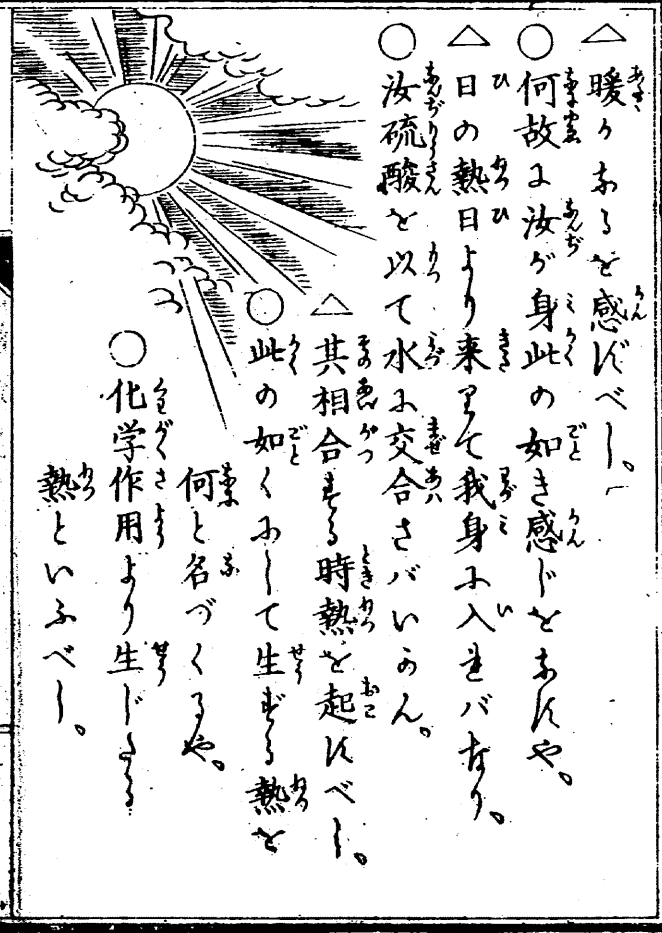 △暖かなるを感ずべし。
○何故に汝が身此の如き感じをなすや。
△日の熱日より来りて我身に入ればなり。
○汝硫酸を以て水に交合さばいかん。
△其相合する時熱を起すべし。
○此の如くにして生ずる熱を
何と名づくるや。
○化学作用より生じたる
熱といふべし。